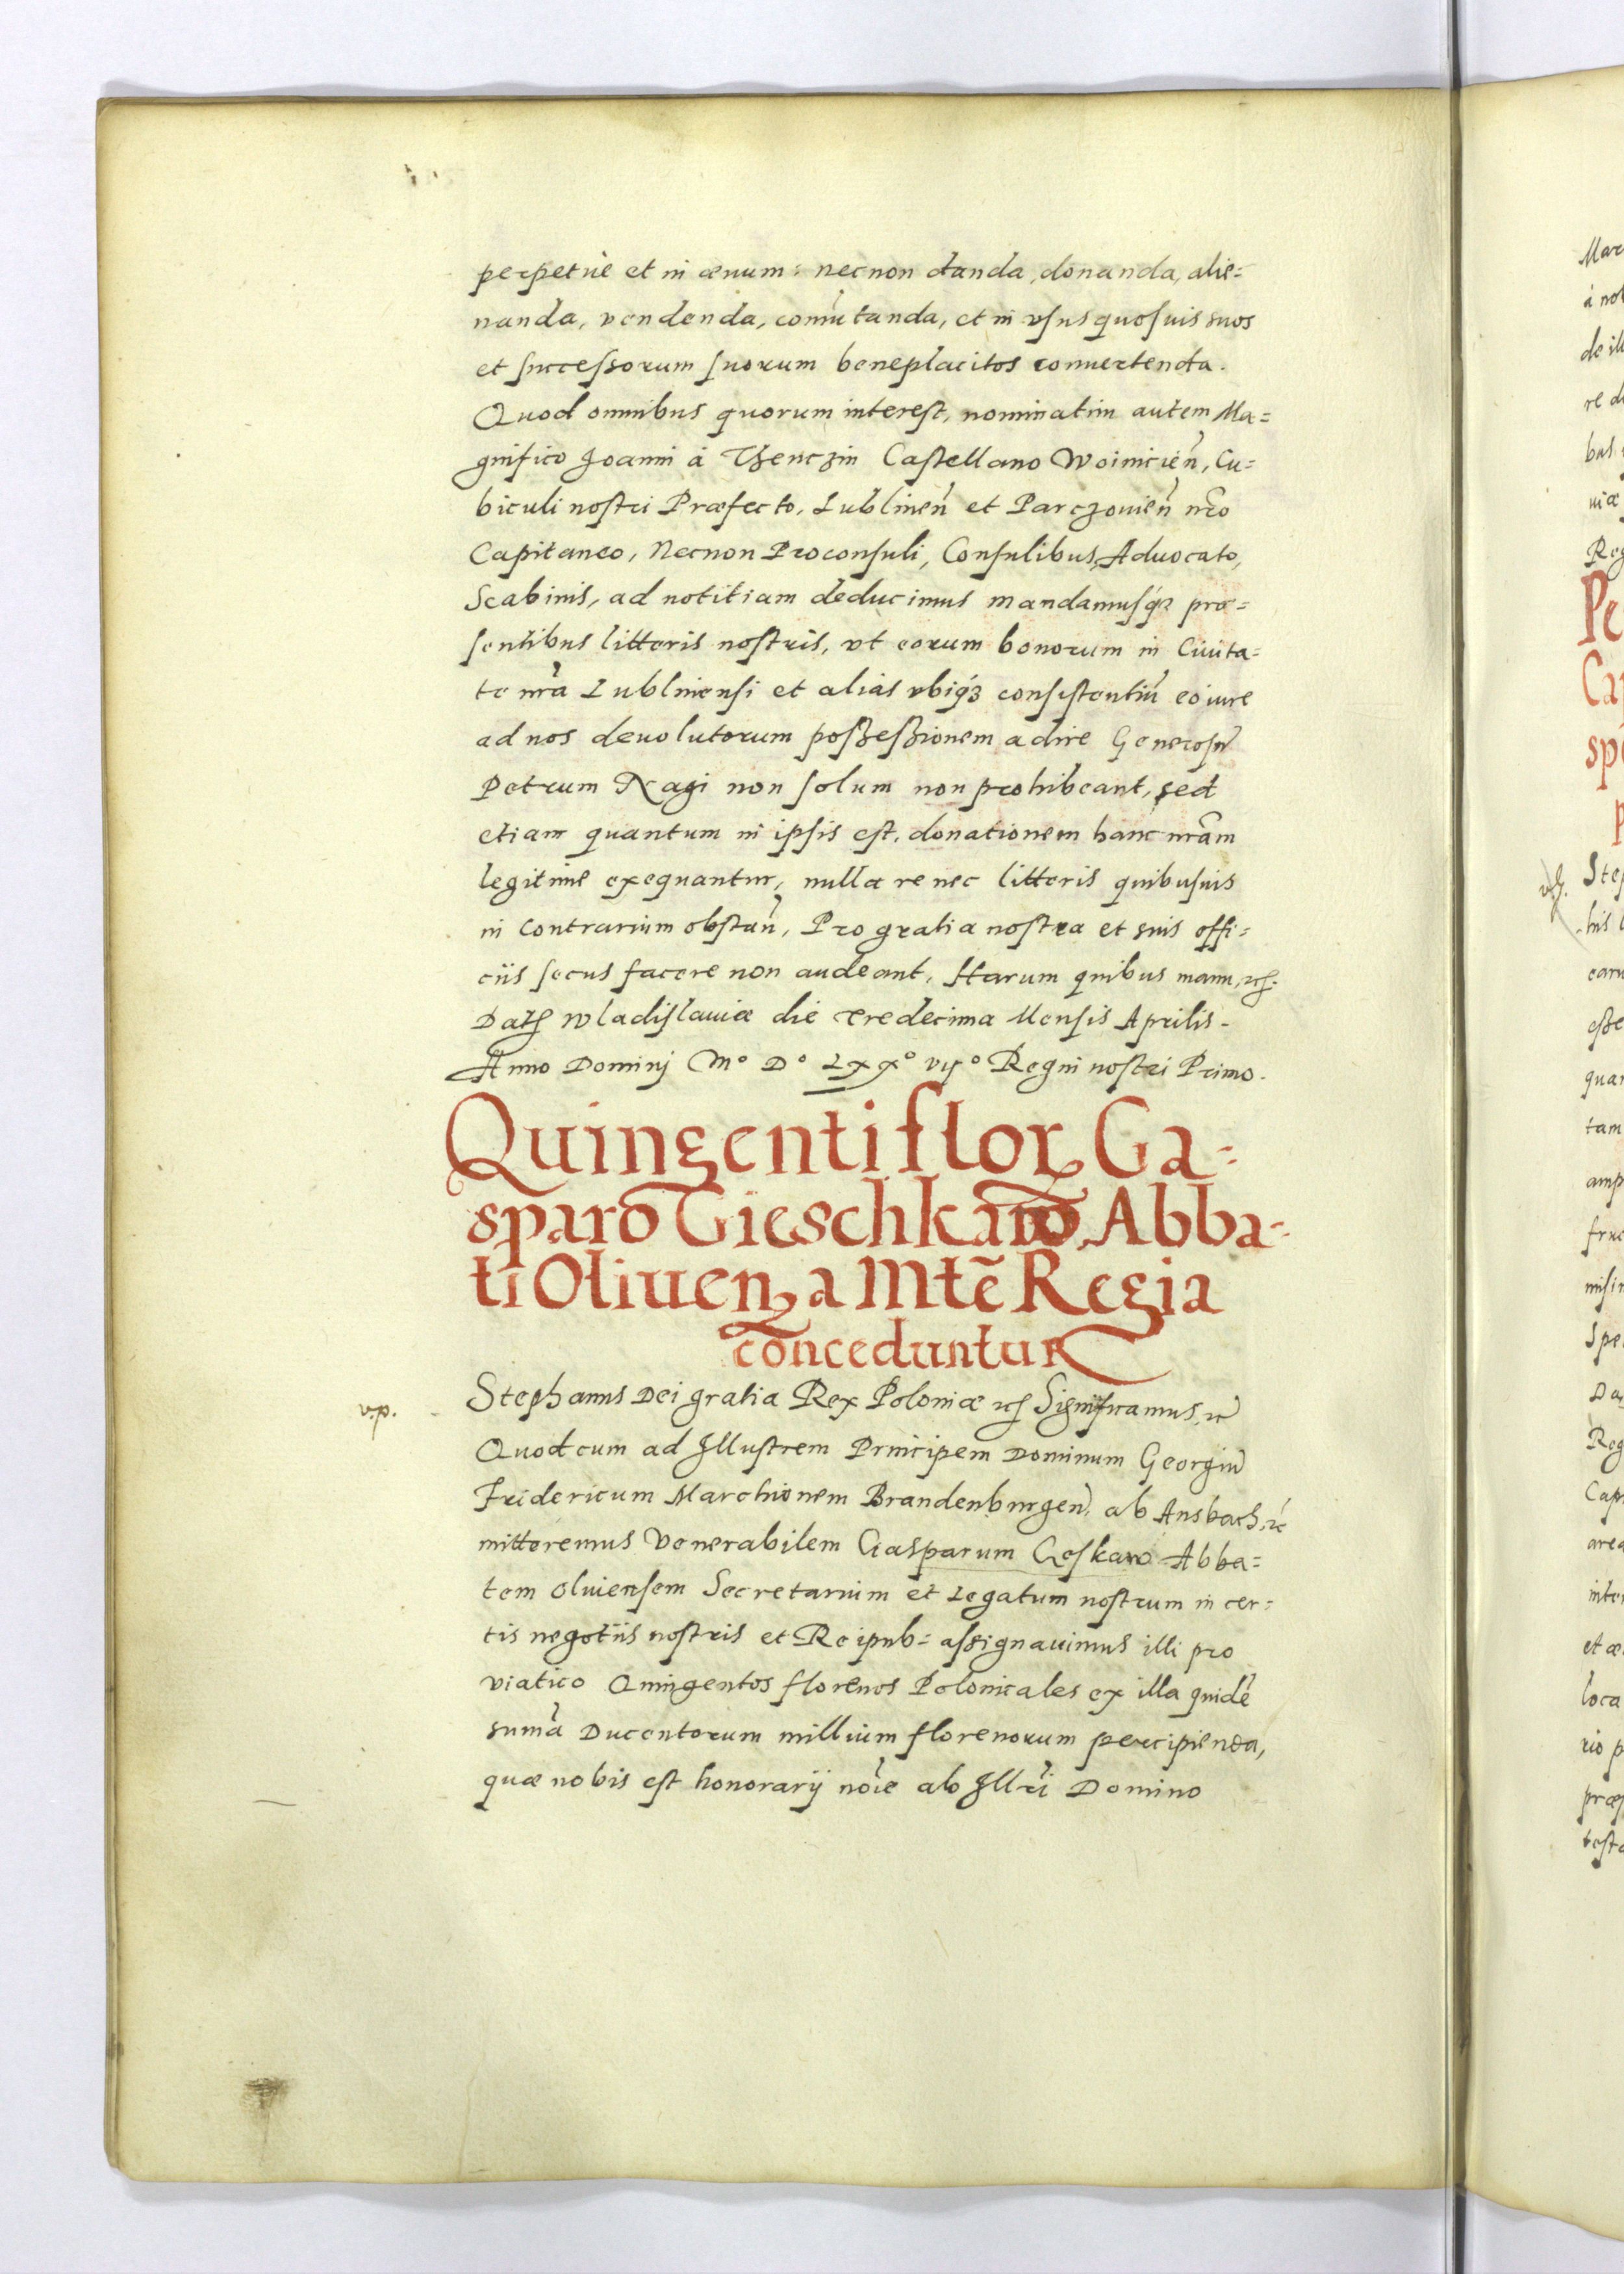 perpetue et in æuum: necnon danda, donanda, alie=
nanda, vendenda, comutanda, et in vſus quoſuis suos
et ſucceſsorum ſuorum beneplacitos conuertenda.
Quod omnibus quorum interest, nominatim autem Ma=
gnifico Joanni à Thenczin Caſtellano Woinicień, Cu=
biculi noſtri Præfecto, Lublineń et Parczouień nr̃o
Capitaneo, Necnon Proconſuli, Conſulibus, Aduocato,
Scabinis, ad notitiam deducimus mandamuſq́ʒ præ=
ſentibus litteris noſtris, vt eorum bonorum in Ciuita=
te nr̃a Lublinensi et alias vbiq́ʒ conſiſtentiũ eo iure
ad nos deuolutorum poßeßionem adire Generoſũ
Petrum Nagi non ſolum non prohibeant, sed
etiam quantum in ipſis eſt, donationem hanc nr̃am
legitime exequantur, nulla re nec litteris quibuſuis
in contrarium obſtań, Pro gratia noſtra et suis offi=
ciis ſecus facere non audeant. Harum quibus manu, ꝛc̃.
Datʒ Wladiſlauiæ die tredecima Menſis Aprilis.
Anno Dominj M° D° LXX° vij° Regni noſtri Primo.
Quingenti florʒ Ga=
sparo Gieschkaw, Abba=
ti Oliuenʒ a Mtẽ Regia
conceduntur
v.p. Stephanus Dei gratia Rex Poloniæ ꝛc̃ Significamus, ꝛc̃
Quod cum ad Illuſtrem Principem Dominum Georgiũ
Fridericum Marchionem Brandenburgeñ. ab Ansbach, ꝛc̃
mitteremus Venerabilem Gasparum Geſkaw Abba=
tem Oliuienſem Secretarium et Legatum noſtrum in cer=
tis negotiis noſtris et Reipub= aſsignauimus illi pro
viatico Quingentos florenos Polonicales ex illa quidẽ
sum̃a Ducentorum millium florenorum percipienda,
quæ nobis eſt honorarij nõie ab Illr̃i Domino